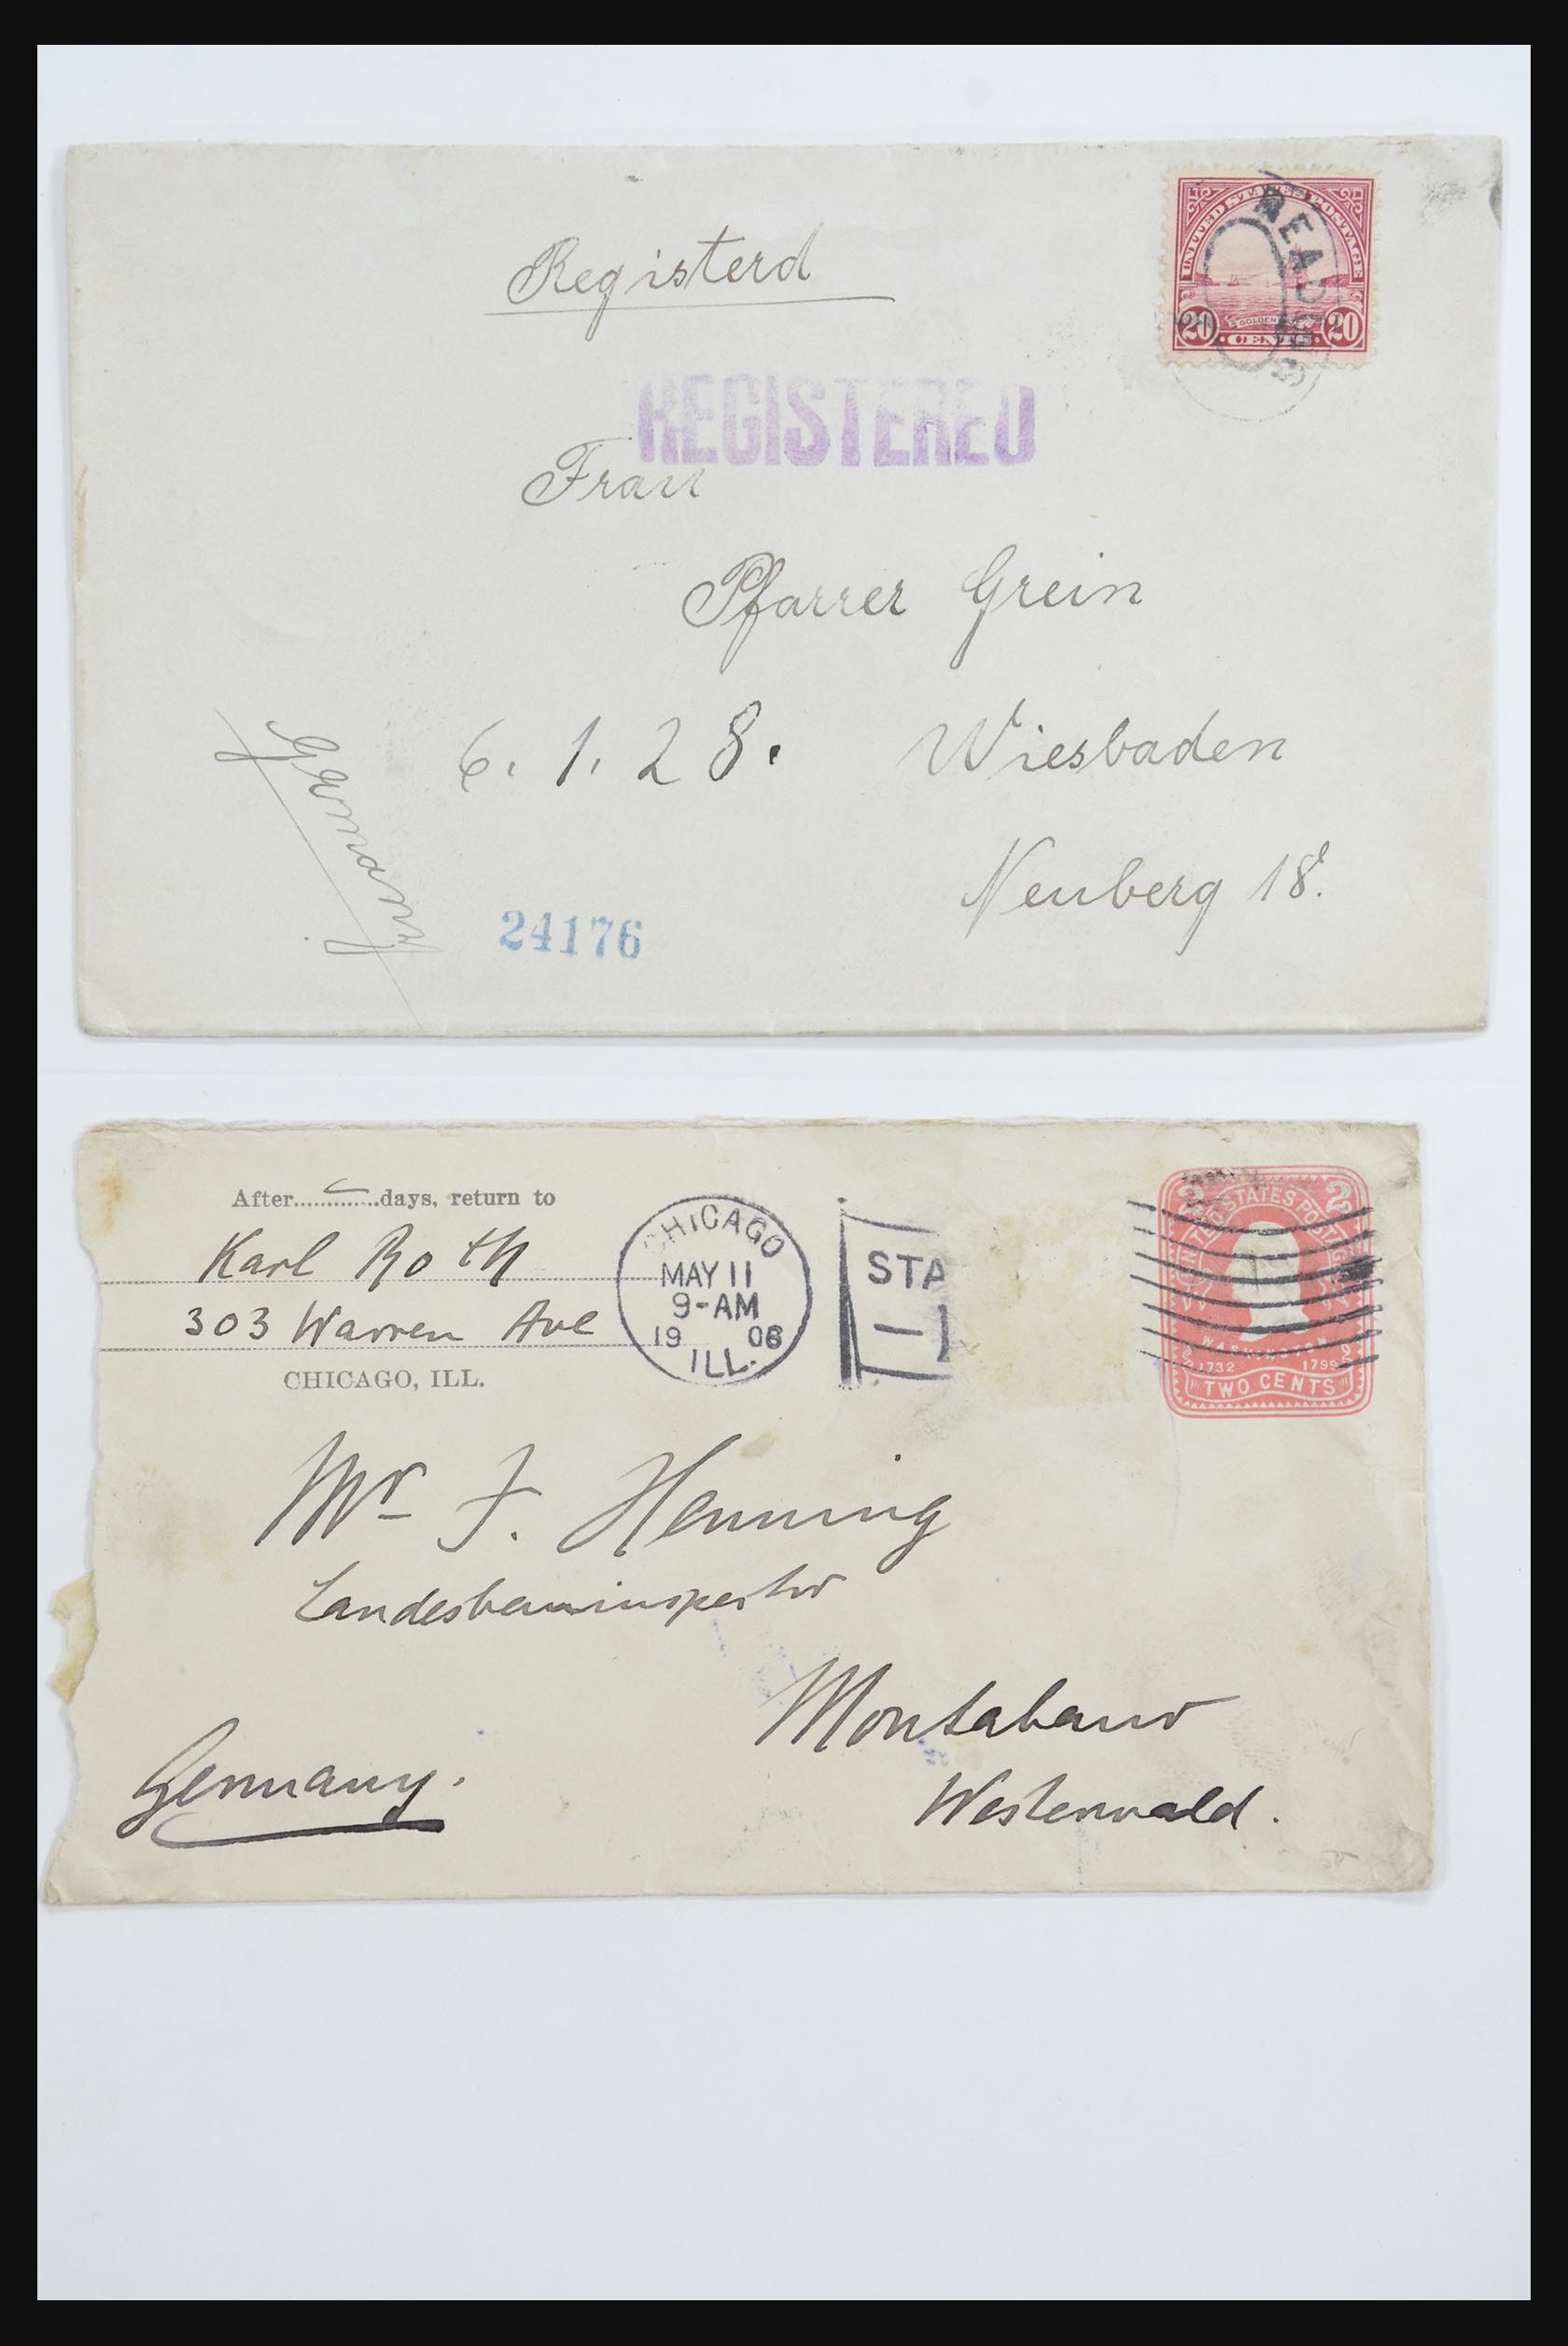 Registerd
UNITED STATES POSTAGE
20 GOLDEN 20
CENTS
REGISTERED
Frau
Pfarrer Grein
6. 1. 28. Wiesbaden
Neuberg 18.
Germany
24176
After............days, return to
Karl Roth
303 Warren Ave
CHICAGO, ILL.
CHICAGO
MAY 11
9-AM
19 06
ILL.
STA
UNITED STATES POSTAGE
2 2
WASHINGTON
1732 1799
TWO CENTS
Mr F. Henning
Landesbauinspector
Montabaur
Westerwald.
Germany.